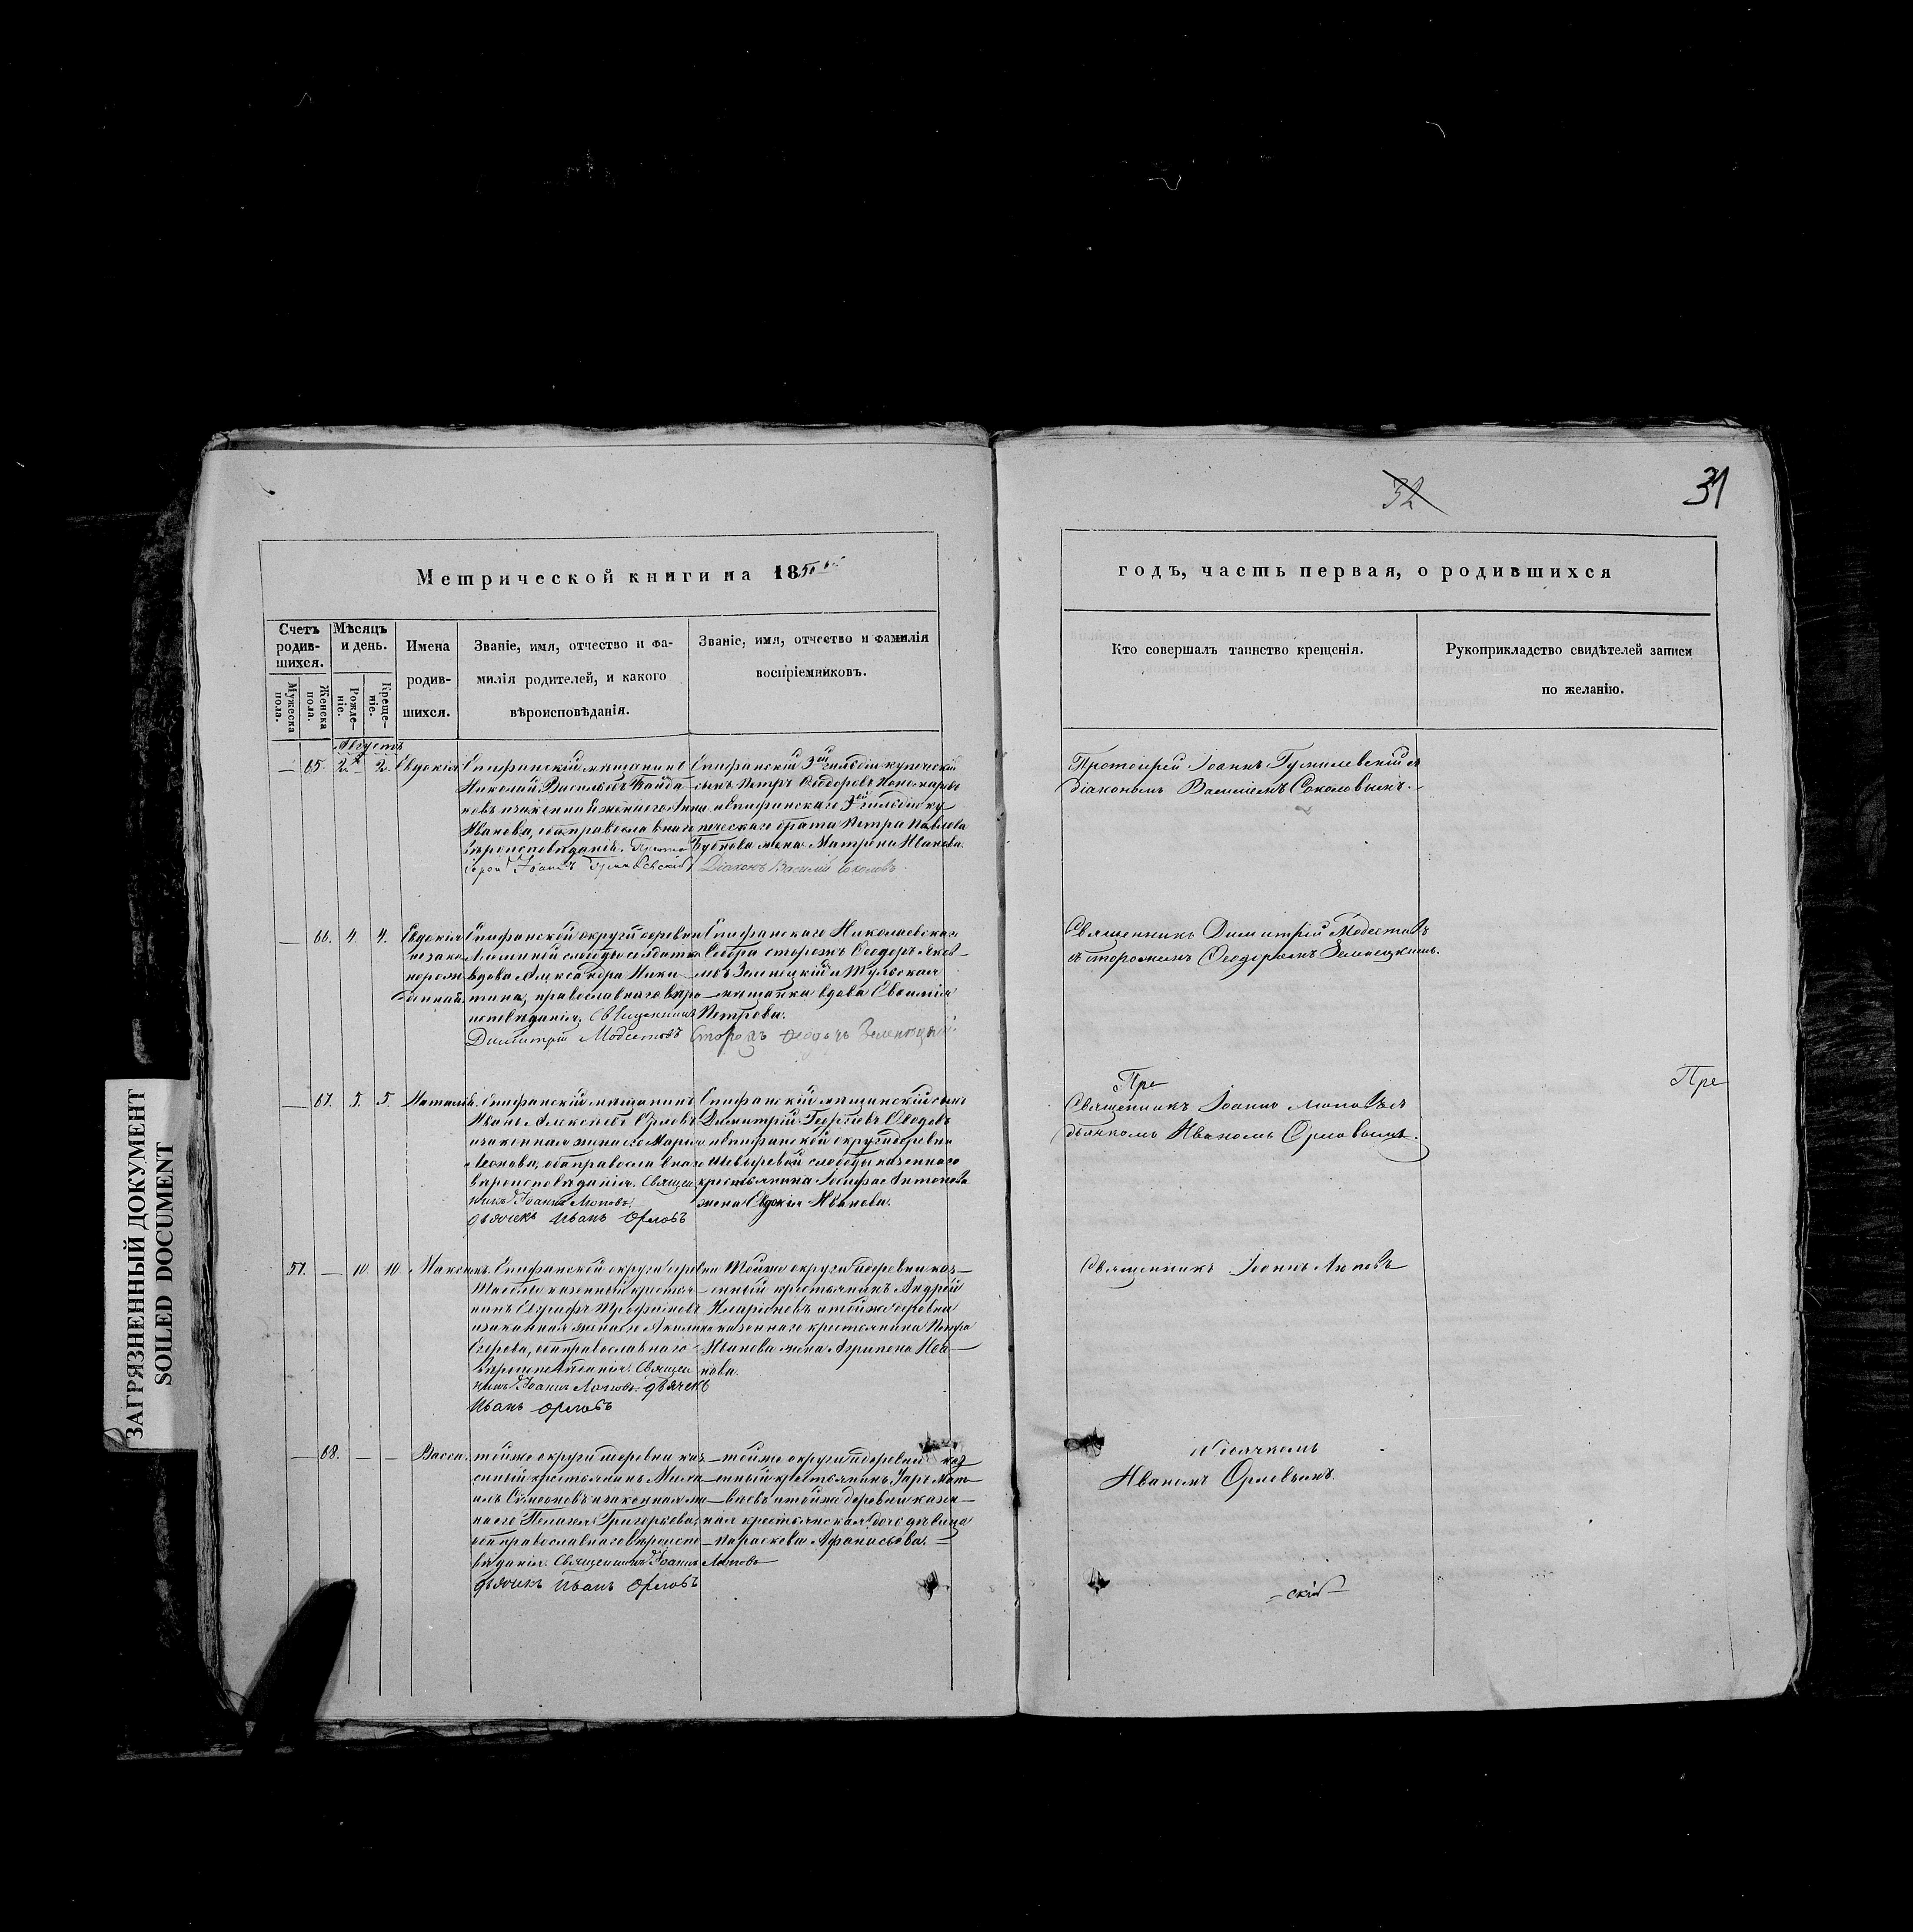 32
31
Метрической книги на 1850
годъ, часть первая, о родившихся
Счетъ родившихся.
Мужеска пола.
Женска пола.
Мѣсяцъ и день.
Рожденіе.
Крещеніе.
Имена родившихся.
Званіе, имя, отчество и фамилія родителей, и какого вѣроисповѣданія.
Званіе, имя, отчество и фамилія воспріемниковъ.
Кто совершалъ таинство крещенія.
Рукоприкладство свидѣтелей записи по желанію.
Августъ
— 65. 2. 2. Евдокія
Епифанскій мѣщанинъ
Николай Васильевъ
новъ и законная жена его Анна
Иванова, оба православнаго
вѣроисповѣданія. Прото
іерей Іоаннъ Гумилевскій
Епифанскій 3й гильдіи купеческій
сынъ Петръ Ѳеодоровъ Пономаревъ
и епифанскаго 3ей гильдіи ку
печескаго брата Петра Павлова
жена Матрена Иванова.
Діаконъ Василій Соколовъ.
Протоіерей Іоаннъ Гумилевскій съ
діакономъ Василіемъ Соколовымъ.
— 66. 4. 4. Евдокія
незако
норож
денная.
Епифанской округи деревни
слободы солдатка
вдова Александра Ники
тина, православнаго вѣро
исповѣданія. Священникъ
Димитрій Модестовъ
Епифанскаго Николаевскаго
Собора сторожъ Ѳеодоръ Яков
левъ Зеленецкій и Тульская
мѣщанка вдова Евфимія
Петрова.
Сторожъ Ѳеодоръ Зеленецкій
Священникъ Димитрій Модестовъ
съ сторожемъ Ѳеодоромъ Зеленецкимъ.
— 67. 5. 5. Наталія.
Епифанскій мѣщанинъ
Иванъ Алексѣевъ Орловъ
и законная жена его Марія
Леонова, оба православнаго
вѣроисповѣданія. Священ
никъ Іоаннъ Поповъ.
дьячекъ Иванъ Орловъ
Епифанскій мѣщанскій сынъ
Димитрій Георгіевъ
и епифанской округи деревни
слободы казеннаго
крестьянина Іосифа Антонова
жена Евдокія Иванова.
Пре
Пре
Священникъ Іоаннъ Поповъ съ
дьячкомъ Иваномъ Орловымъ.
51. — 10 10 Максимъ.
Епифанской округи деревни
казенный крестья
нинъ Евграфъ Трофимовъ
и законная жена его Акилина
Егорова, оба православнаго
вѣроисповѣданія. Священ
никъ Іоаннъ Поповъ. дьячекъ
Иванъ Орловъ
Той же округи и деревни каз
енный крестьянинъ Андрей
Иларіоновъ и той же деревни
казеннаго крестьянина Петра
Иванова жена Агрипена Ива
нова.
Священникъ Іоаннъ Поповъ
— 68. — — Васса.
той же округи и деревни каз
енный крестьянинъ Миха
илъ Симеоновъ и законная же
на его Пелагея Григорьева,
оба православнаго вѣроиспо
вѣданія. Священникъ Іоаннъ Поповъ
дьячекъ Иванъ Орловъ
той же округи и деревни каз
енный крестьянинъ
и той же деревни казен
ная крестьянская дочь дѣвица
Параскева Афонасьева.
съ дьячкомъ
Иваномъ Орловымъ.
скій
ЗАГРЯЗНЕННЫЙ ДОКУМЕНТ
SOILED DOCUMENT